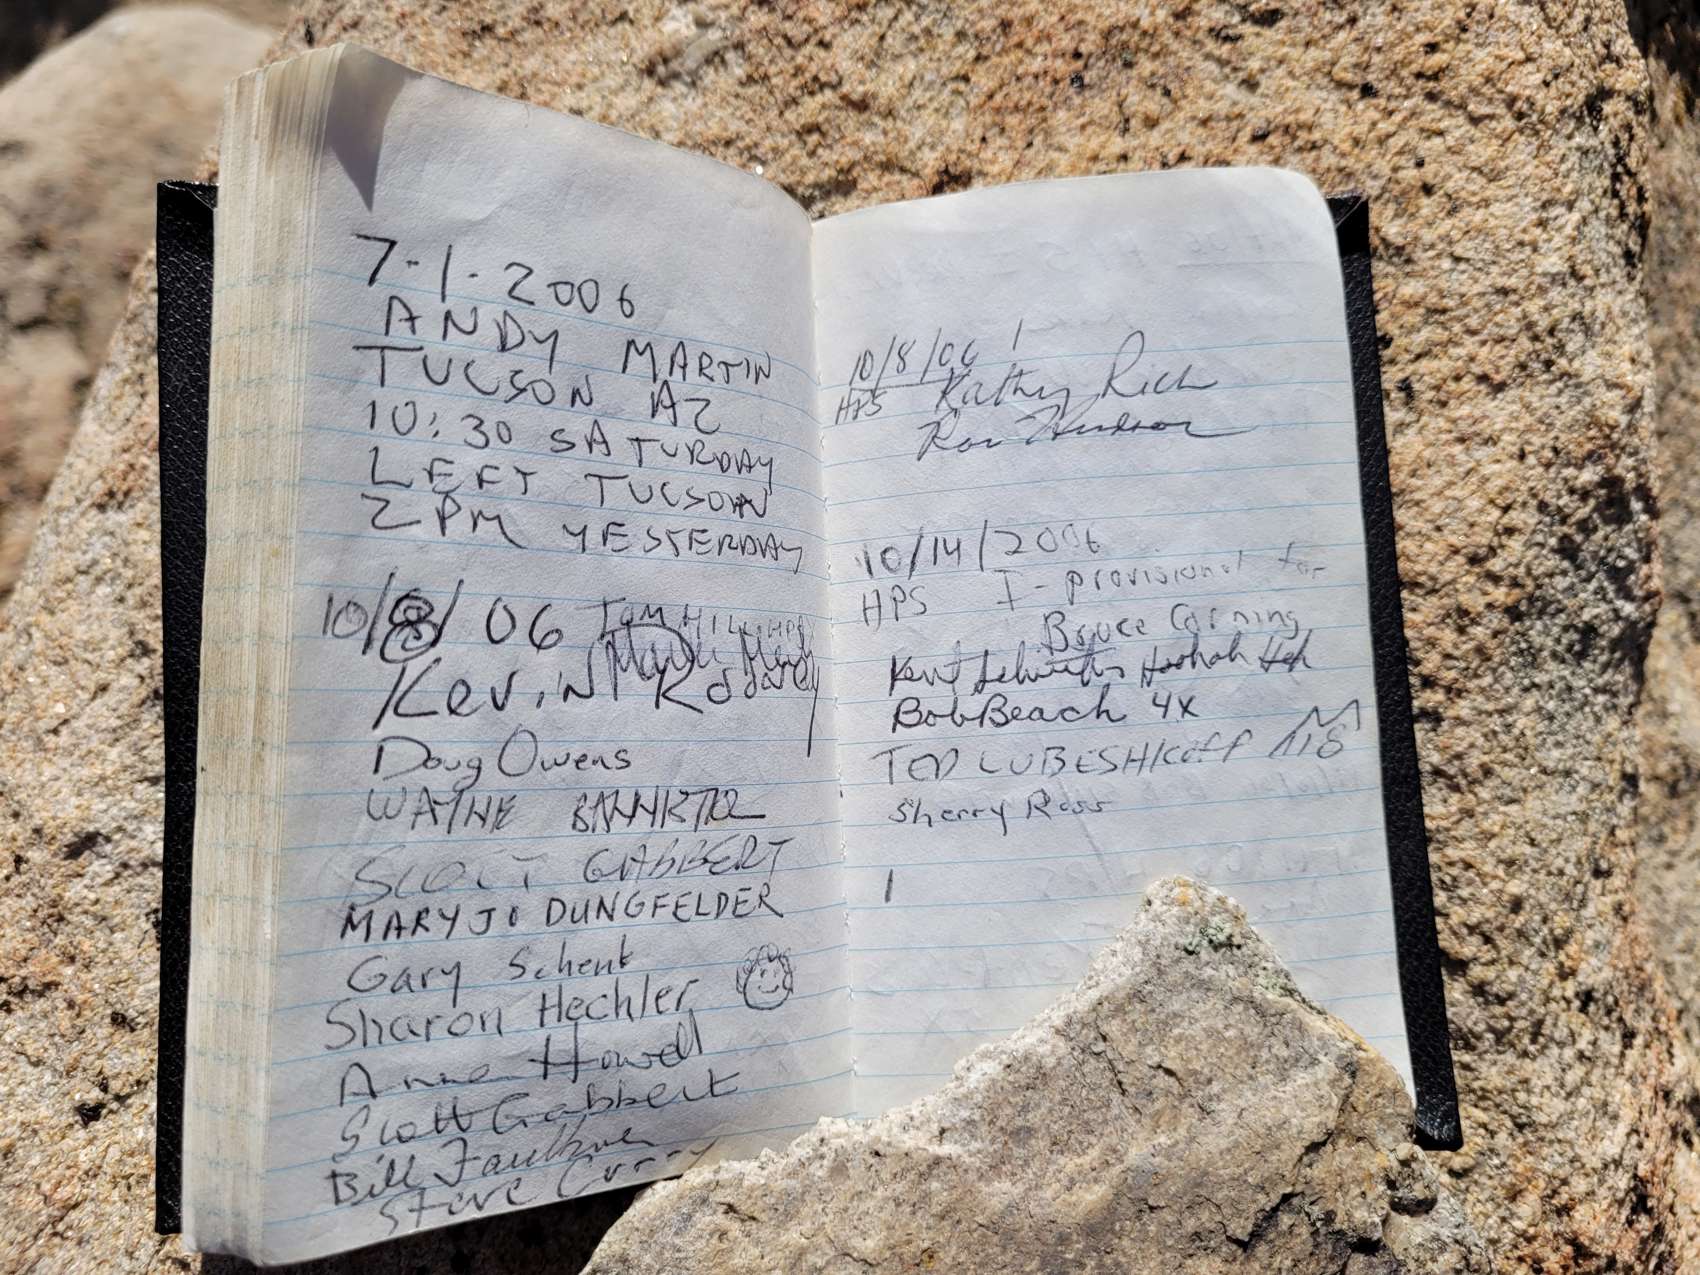 7-1-2006
ANDY MARTIN
TUCSON AZ
10:30 SATURDAY
LEFT TUCSON
2 PM YESTERDAY
10/8/06 TOM HILL HPS
Kevin
Doug Owens
WAYNE BANNISTER
SCOTT GABBERT
MARY JO DUNGFELDER
Gary Schenk
Sharon Hechler
Anne Howell
Scott Gabbert
Bill Faulkner
Steve Curry
10/8/06
HPS Kathy Rich
Ron Hudson
10/14/2006
HPS I-provisional for
Bruce Corning
Kent
Bob Beach 4x
TED LUBESHKOFF
Sherry Ross